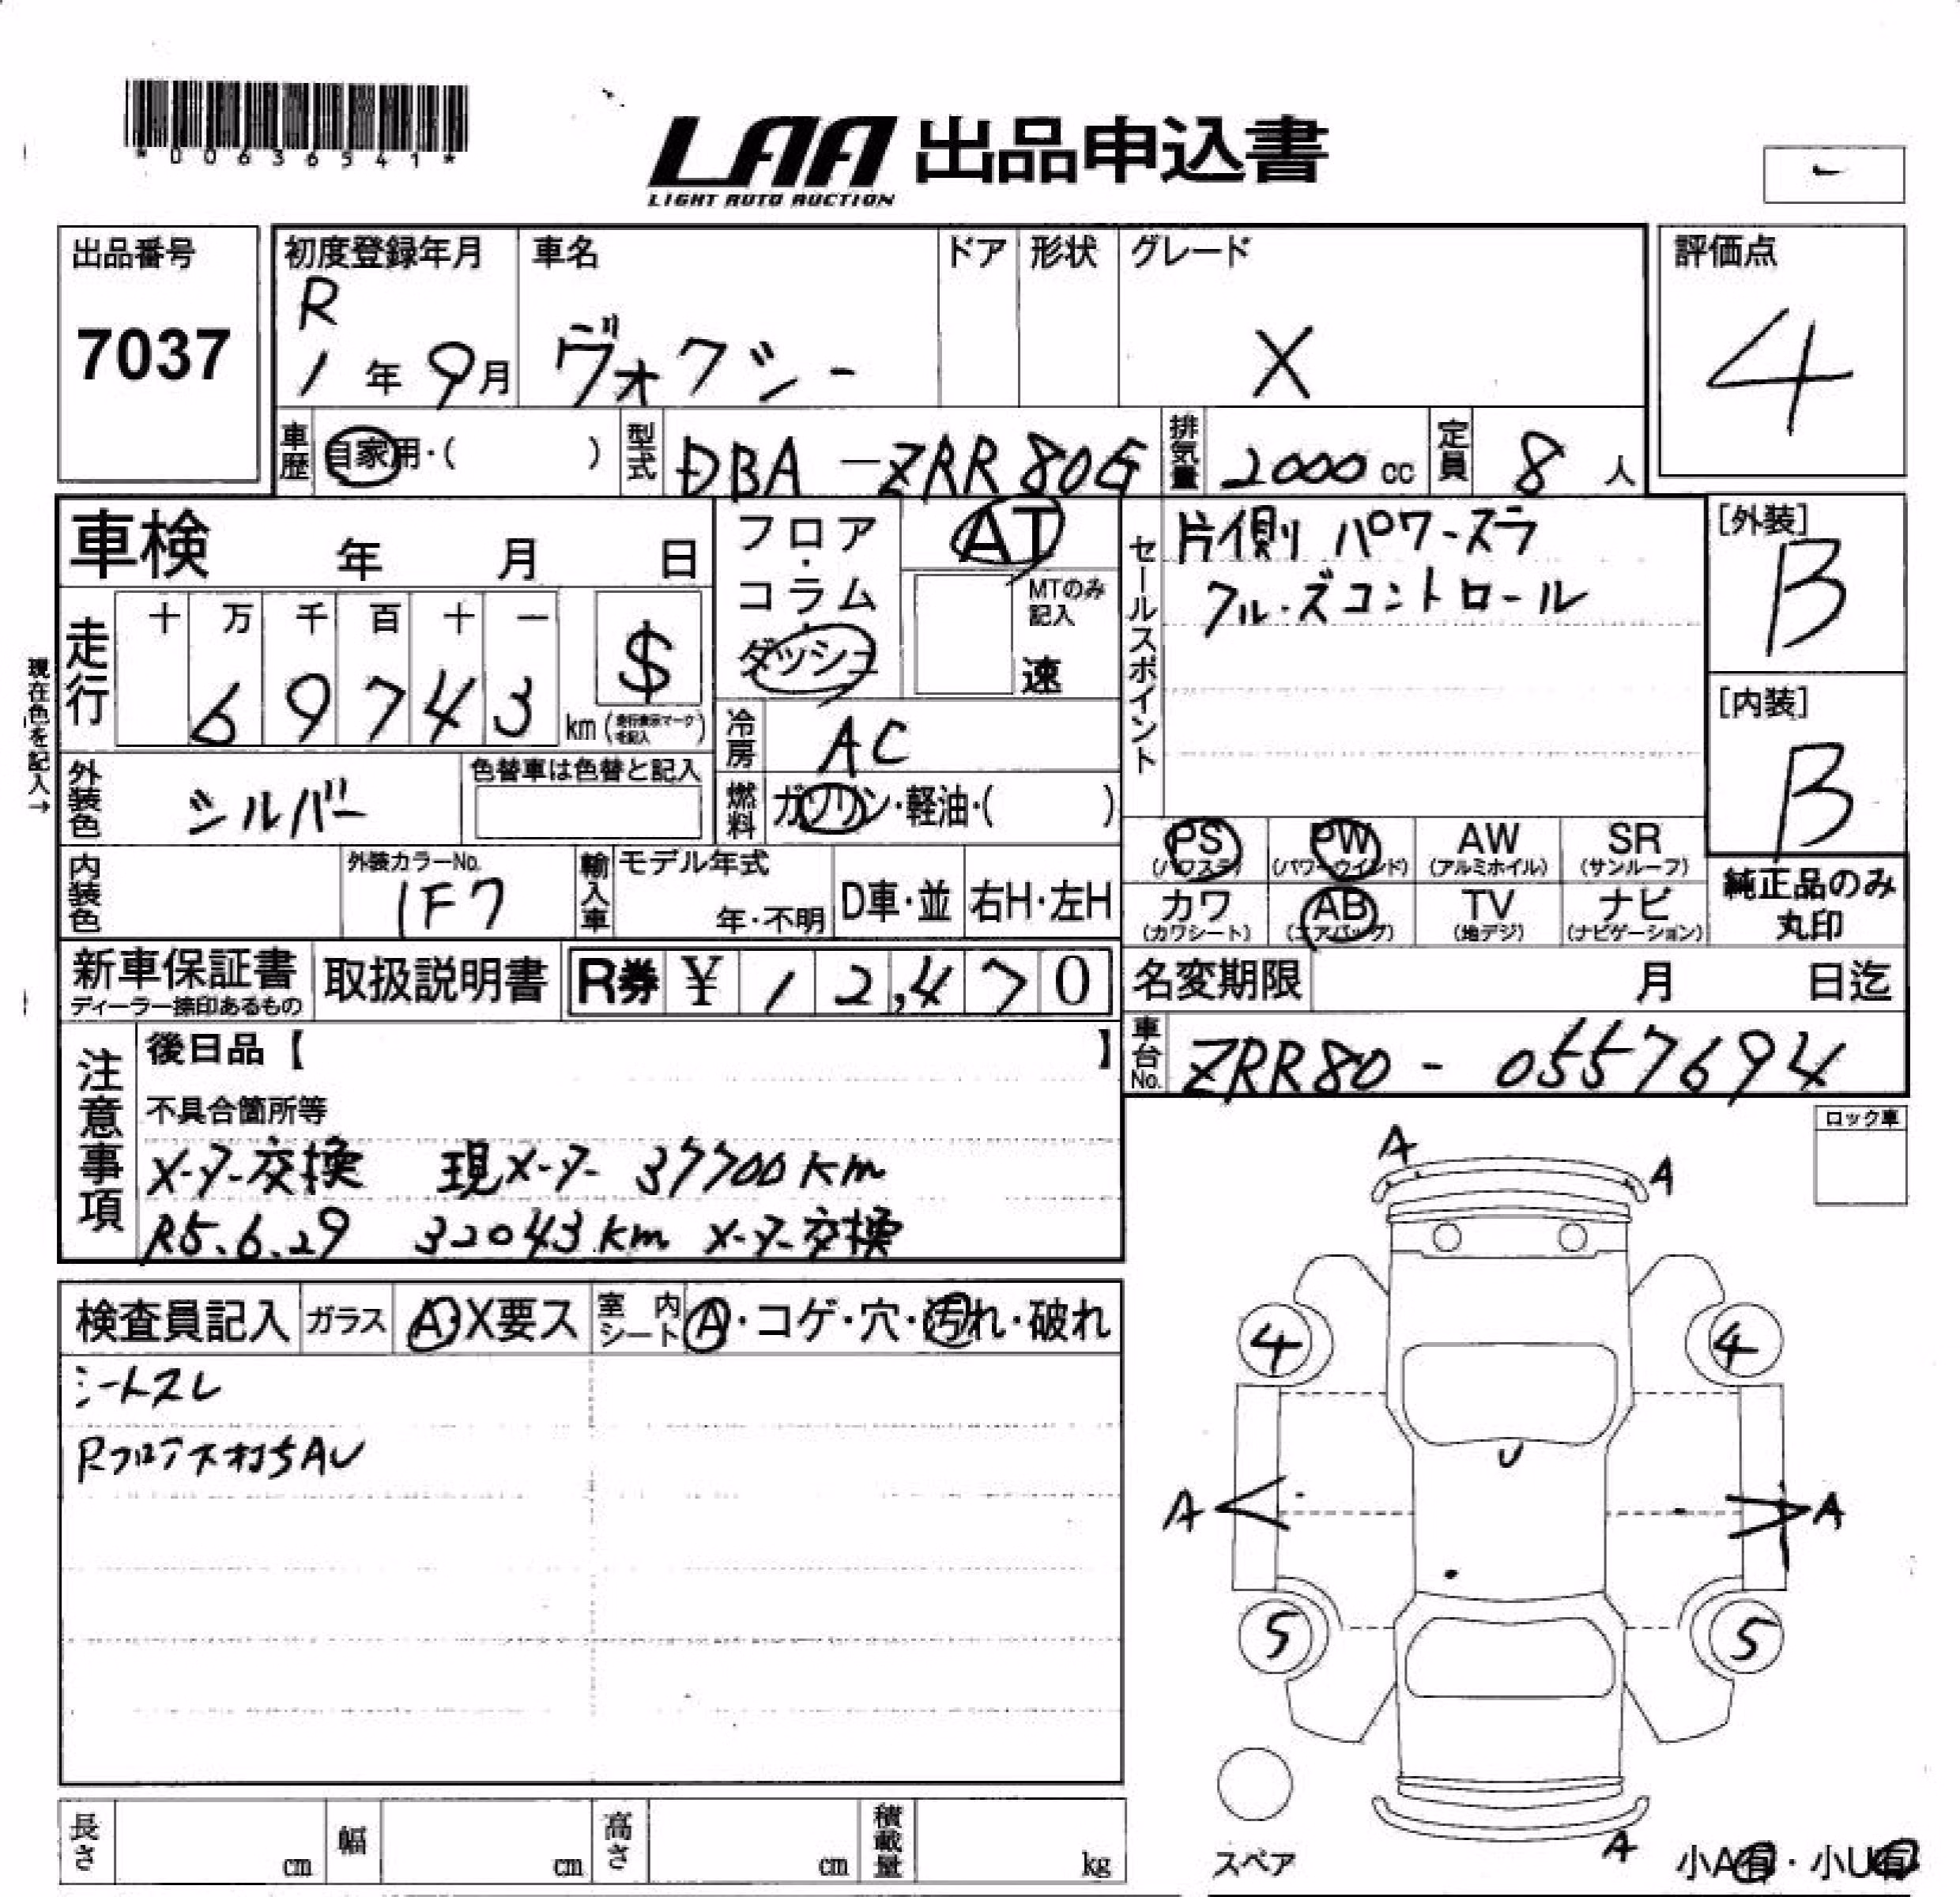 *00636541*
LAA 出品申込書
LIGHT AUTO AUCTION
出品番号 7037
初度登録年月 R 1年 9月
車名 ヴォクシー
ドア 形状 グレード X
評価点 4
車歴 自家用・( )
型式 DBA-ZRR80G
排気量 2000 cc
定員 8 人
車検 年 月 日
フロア・コラム・ダッシュ
AT
MTのみ記入 速
セールスポイント 片側パワースラ
クルーズコントロール
[外装] B
[内装] B
現在色を記入→
走行 十 万 千 百 十 一
6 9 7 4 3 km $
冷房 AC
外装色 シルバー
色替車は色替と記入
燃料 ガソリン・軽油・( )
PS (パワステ) PW (パワーウインド) AW (アルミホイル) SR (サンルーフ)
カワ (カワシート) AB (エアバッグ) TV (地デジ) ナビ (ナビゲーション)
純正品のみ丸印
内装色
外装カラーNo. 1F7
輸入車 モデル年式 年・不明 D車・並 右H・左H
新車保証書 ディーラー捺印あるもの
取扱説明書
R券 ¥ 12,470
名変期限 月 日迄
車台No. ZRR80-0557694
注意事項
後日品【 】
不具合箇所等
メーター交換 現メーター 37700km
R5.6.29 32043km メーター交換
ロック車
検査員記入 ガラス A・X要ス 室内シート A・コゲ・穴・汚れ・破れ
シートスレ
A A
4 4
U
A A
5 5
A
スペア
小A有・小U有
長さ cm 幅 cm 高さ cm 積載量 kg